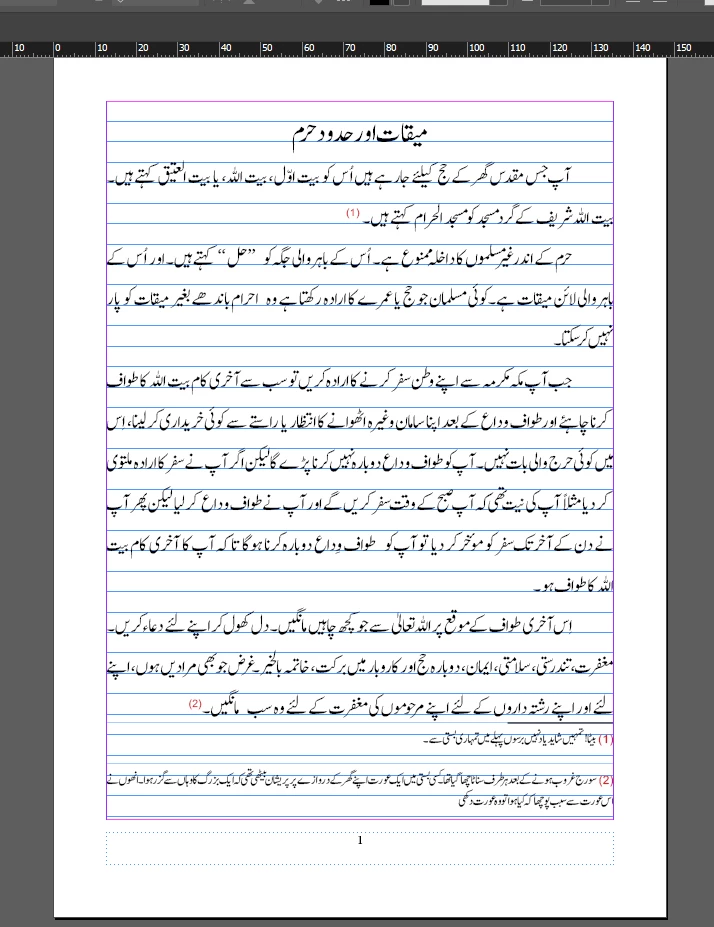 10 0 10 20 30 40 50 60 70 80 90 100 110 120 130 140 150
میقات اور حدود حرم
آپ جس مقدس گھر کے حج کیلئے جارہے ہیں اُس کو بیت اوّل، بیت اللہ، یا بیت العتیق کہتے ہیں۔
بیت اللہ شریف کے گرد مسجد کو مسجد الحرام کہتے ہیں۔ (1)
حرم کے اندر غیر مسلموں کا داخلہ ممنوع ہے۔ اُس کے باہر والی جگہ کو ”حل“ کہتے ہیں۔ اور اُس کے
باہر والی لائن میقات ہے۔ کوئی مسلمان جو حج یا عمرے کا ارادہ رکھتا ہے وہ احرام باندھے بغیر میقات کو پار
نہیں کرسکتا۔
جب آپ مکہ مکرمہ سے اپنے وطن سفر کرنے کا ارادہ کریں تو سب سے آخری کام بیت اللہ کا طواف
کرنا چاہئے اور طواف وداع کے بعد اپنا سامان وغیرہ اٹھوانے کا انتظار یا راستے سے کوئی خریداری کرلینا، اس
میں کوئی حرج والی بات نہیں۔ آپ کو طواف وداع دوبارہ نہیں کرنا پڑے گا لیکن اگر آپ نے سفر کا ارادہ ملتوی
کر دیا مثلاً آپ کی نیت تھی کہ آپ صبح کے وقت سفر کریں گے اور آپ نے طواف وداع کر لیا لیکن پھر آپ
نے دن کے آخر تک سفر کو مؤخر کر دیا تو آپ کو طواف وداع دوبارہ کرنا ہوگا تاکہ آپ کا آخری کام بیت
اللہ کا طواف ہو۔
اس آخری طواف کے موقع پر اللہ تعالیٰ سے جو کچھ چاہیں مانگیں۔ دل کھول کر اپنے لئے دعاء کریں۔
مغفرت، تندرستی، سلامتی، ایمان، دوبارہ حج اور کاروبار میں برکت، خاتمہ بالخیر۔ غرض جو بھی مرادیں ہوں، اپنے
لئے اور اپنے رشتہ داروں کے لئے اپنے مرحوموں کی مغفرت کے لئے وہ سب مانگیں۔ (2)
(1) بیٹا! تمہیں شاید یاد نہیں برسوں پہلے میں تمہاری بستی سے۔
(2) سورج غروب ہونے کے بعد ہر طرف سناٹا چھا گیا تھا۔ کسی بستی میں ایک عورت اپنے گھر کے دروازے پر پریشان بیٹھی تھی کہ ایک بزرگ کا وہاں سے گزر ہوا۔ انھوں نے
اس عورت سے سبب پوچھا کہ کیا ہوا تو وہ عورت دکھی
1